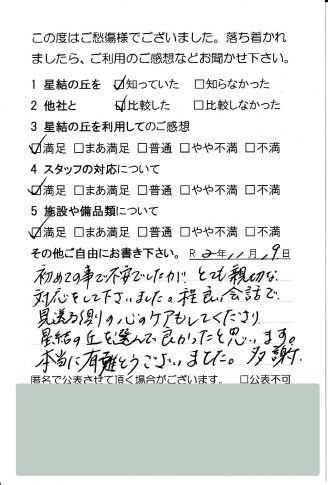 この度はご愁傷様でございました。落ち着かれ
ましたら、ご利用のご感想などお聞かせ下さい。
1 星結の丘を ☑知っていた □知らなかった
2 他社と ☑比較した □比較しなかった
3 星結の丘を利用してのご感想
☑満足 □まあ満足 □普通 □やや不満 □不満
4 スタッフの対応について
☑満足 □まあ満足 □普通 □やや不満 □不満
5 施設や備品類について
☑満足 □まあ満足 □普通 □やや不満 □不満
その他ご自由にお書き下さい。 R 2年11月19日
初めての事で不安でしたが とても親切な
対応をして下さいました。程良い会話で
見送る側の心のケアもしてくださり
星結の丘を選んで良かったと思います。
本当に有難とうございました。多謝.
匿名で公表させて頂く場合がございます。 □公表不可